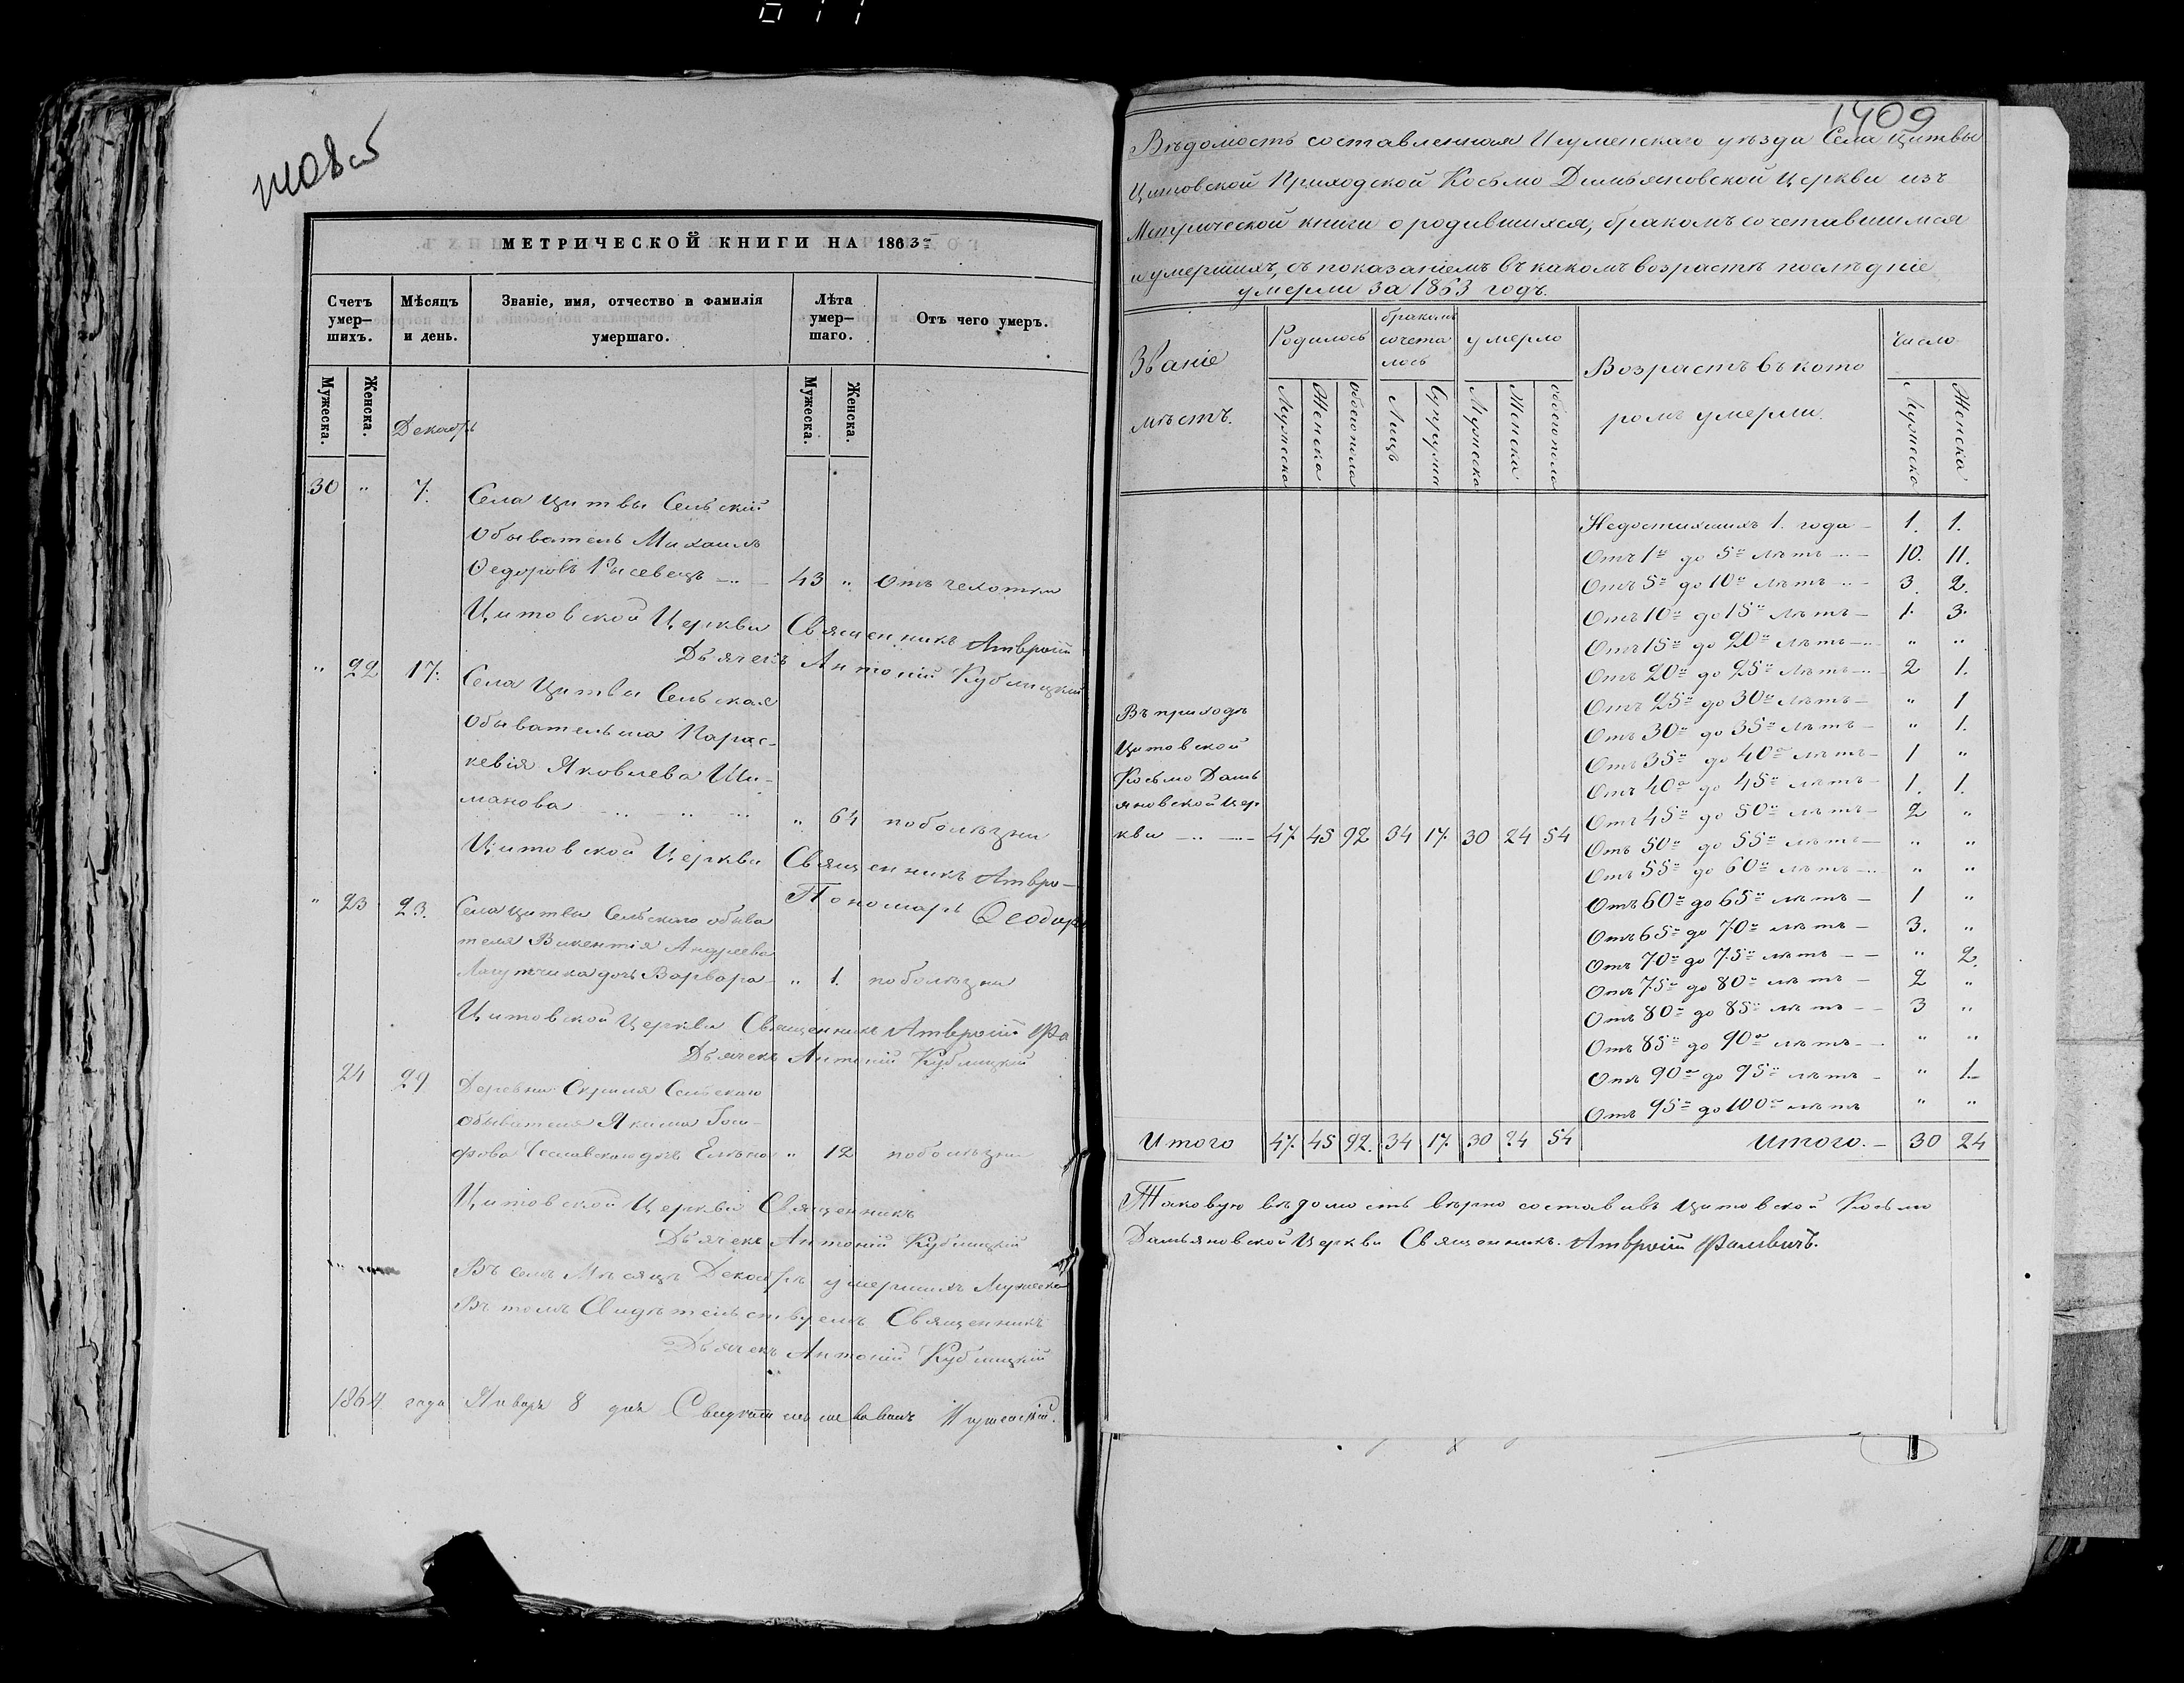 1408 об
МЕТРИЧЕСКОЙ КНИГИ НА 1863й
Счетъ умер-шихъ.
Мѣсяцъ и день.
Званіе, имя, отчество и фамилія умершаго.
Лѣта умер-шаго.
Отъ чего умеръ.
Мужеска. Женска.
Декабрь
Мужеска. Женска.
30 " 7. Села Цитвы Сельскій
обыватель Михаилъ
Ѳедоровъ Рысевецъ 43 " отъ чехотки
Цитовской Церкви Священникъ Амвросій
Дьячекъ Антоній Кублицкій
" 22 17. Села Цитвы Сельская
обывательша Парас-
кевія Яковлева Ши-
манова " 64 по болѣзни
Цитовской Церкви Священникъ Амвро-
Пономарь Ѳеодоръ
" 23 23. Села Цитвы Сельского обыва
теля Викентія Андреева
дочь Варвара " 1. по болѣзни
Цитовской Церкви Священникъ Амвросій Фа
Дьячекъ Антоній Кублицкій
24 29 Деревни Скриля Сельскаго
обывателя Якима Іоси-
фова дочь Елена " 12 по болѣзни
Цитовской Церкви Священникъ
Дьячекъ Антоній Кублицкій
Въ семъ Мѣсяцѣ Декабрѣ умершихъ Мужеска
Въ томъ Свидѣтельствуемъ Священникъ
Дьячекъ Антоній Кублицкій
1864 года Января 8 дня Свидѣтельствовалъ Игуменскій.
1409
Вѣдомость составленная Игуменскаго уѣзда Села Цитвы
Цитовской Приходской Косьмо Дамьяновской Церкви изъ
Метрической книги о родившихся, бракомъ сочетавшимся
и умершихъ, съ показаніемъ въ какомъ возрастѣ послѣдніе
умерли за 1863 годъ.
Званіе мѣстъ.
Родилось
бракомъ сочета лось
умерло
Возрастъ въ кото ромъ умерли.
Число
Мужеска Женска обоего пола Лицъ Супруги Мужеска Женска обоего пола Мужеска Женска
Недостигшихъ 1. года 1. 1.
Отъ 1го до 5ти лѣтъ 10. 11.
Отъ 5ти до 10ти лѣтъ 3. 2.
Отъ 10ти до 15ти лѣтъ 1. 3.
Отъ 15ти до 20ти лѣтъ " "
Отъ 20ти до 25ти лѣтъ 2 1.
Отъ 25ти до 30ти лѣтъ " 1
Отъ 30ти до 35ти лѣтъ " 1.
Отъ 35ти до 40а лѣтъ 1 "
Отъ 40а до 45ти лѣтъ 1. 1.
Отъ 45ти до 50ти лѣтъ 2 "
Отъ 50ти до 55ти лѣтъ " "
Отъ 55ти до 60ти лѣтъ " "
Отъ 60ти до 65ти лѣтъ 1 "
Отъ 65ти до 70ти лѣтъ 3. "
Отъ 70ти до 75ти лѣтъ " 2.
Отъ 75ти до 80ти лѣтъ 2 "
Отъ 80ти до 85ти лѣтъ 3 "
Отъ 85ти до 90о лѣтъ " "
Отъ 90о до 95ти лѣтъ " 1.
Отъ 95ти до 100а лѣтъ " "
Въ приходѣ
Цитовской
Косьмо Дамь
яновской Цер
кви 47. 45 92 34 17. 30 24 54
Итого 47. 45 92. 34 17. 30 24 54 Итого. 30 24
Таковую вѣдомость вѣрно составивъ Цитовской Косьмо
Дамьяновской Церкви Священникъ. Амвросій Фалевичъ.